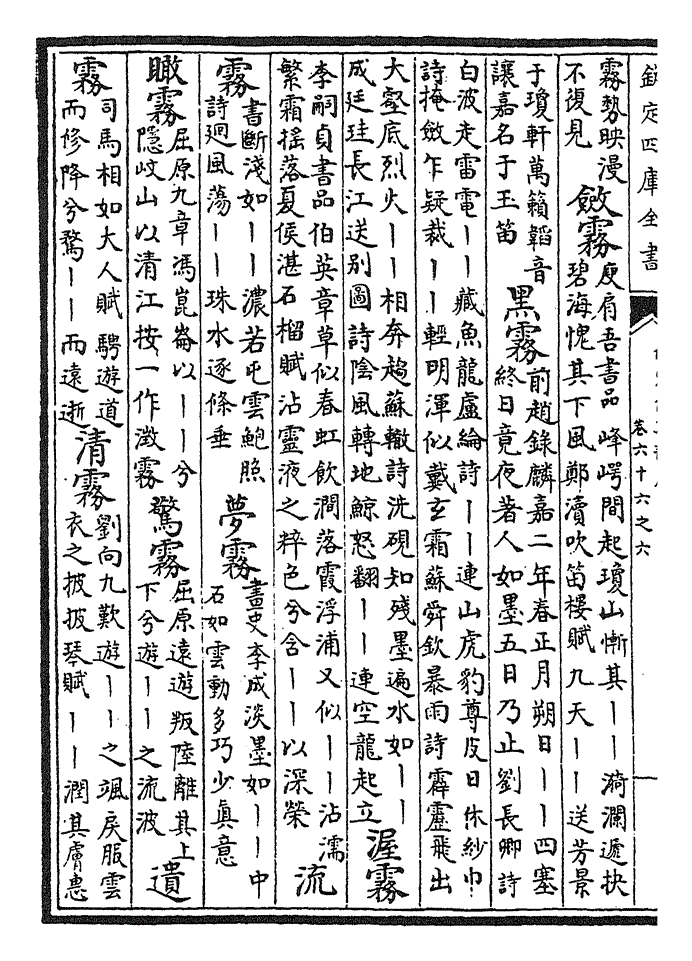 欽定四庫全書
卷六十六之六
霧勢映漫
不復見
斂霧
庾肩吾書品峰崿間起瓊山慚其丨丨漪瀾遞抉
碧海愧其下風鄭瀆吹笛樓賦九天丨丨送芳景
于瓊軒萬籟韜音
讓嘉名于玉笛
黑霧
前趙錄麟嘉二年春正月朔日丨丨四塞
終日竟夜著人如墨五日乃止劉長卿詩
白波走雷電丨丨藏魚龍盧綸詩丨丨連山虎豹尊皮日休紗巾
詩掩斂乍疑裁丨丨輕明渾似戴玄霜蘇舜欽暴雨詩霹靂飛出
大壑底烈火丨丨相奔趨蘇轍詩洗硯知殘墨遍水如丨丨
成廷珪長江送別圖詩陰風轉地鯨怒翻丨丨連空龍起立
渥霧
李嗣貞書品伯英章草似春虹飲澗落霞浮浦又似丨丨沾濡
繁霜搖落夏侯湛石榴賦沾靈液之粹色兮含丨丨以深榮
流
霧
書斷淺如丨丨濃若屯雲鮑照
詩廻風蕩丨丨珠水逐條垂
夢霧
畫史李成淡墨如丨丨中
石如雲動多巧少眞意
瞰霧
屈原九章馮崑崙以丨丨兮
隱岐山以清江按一作澂霧
驚霧
屈原遠遊叛陸離其上
下兮遊丨丨之流波
遺
霧
司馬相如大人賦騁遊道
而修降兮騖丨丨而遠逝
清霧
劉向九歎遊丨丨之颯戾服雲
衣之披披琴賦丨丨潤其膚惠